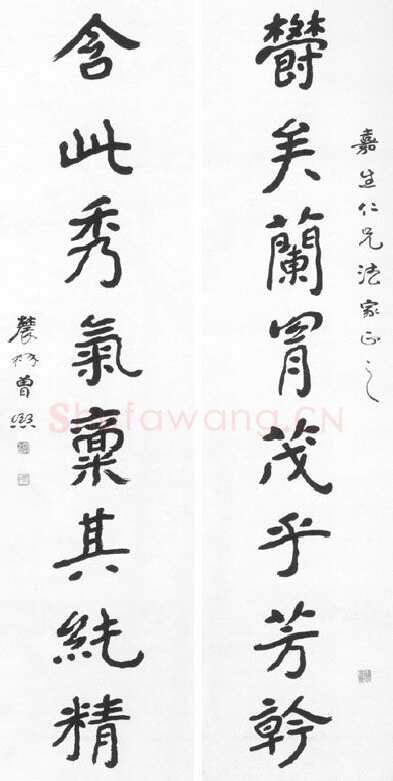 嘉生仁兄法家正之
鬱矣蘭胄茂乎芳幹
含此秀氣稟其純精
農髯曾熙
Shufawang.CN